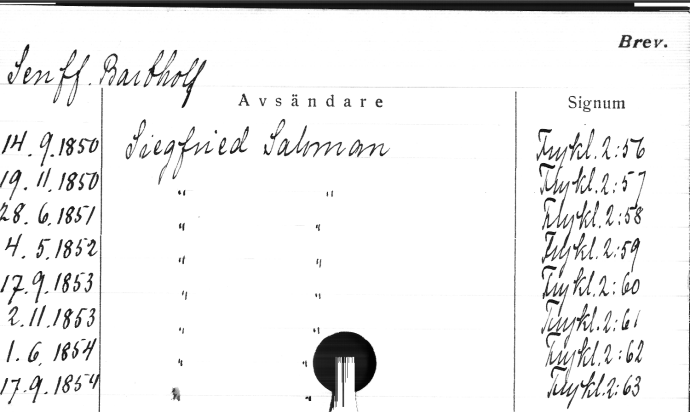 Brev.
Senff. Bartholf
Avsändare Signum
14. 9. 1850 Siegfried Saloman Frykl. 2:56
19. 11. 1850 " " Frykl. 2:57
28. 6. 1851 " " Frykl. 2:58
4. 5. 1852 " " Frykl. 2:59
17. 9. 1853 " " Frykl. 2:60
2. 11. 1853 " " Frykl. 2:61
1. 6. 1854 " " Frykl. 2:62
17. 9. 1854 " " Frykl. 2:63